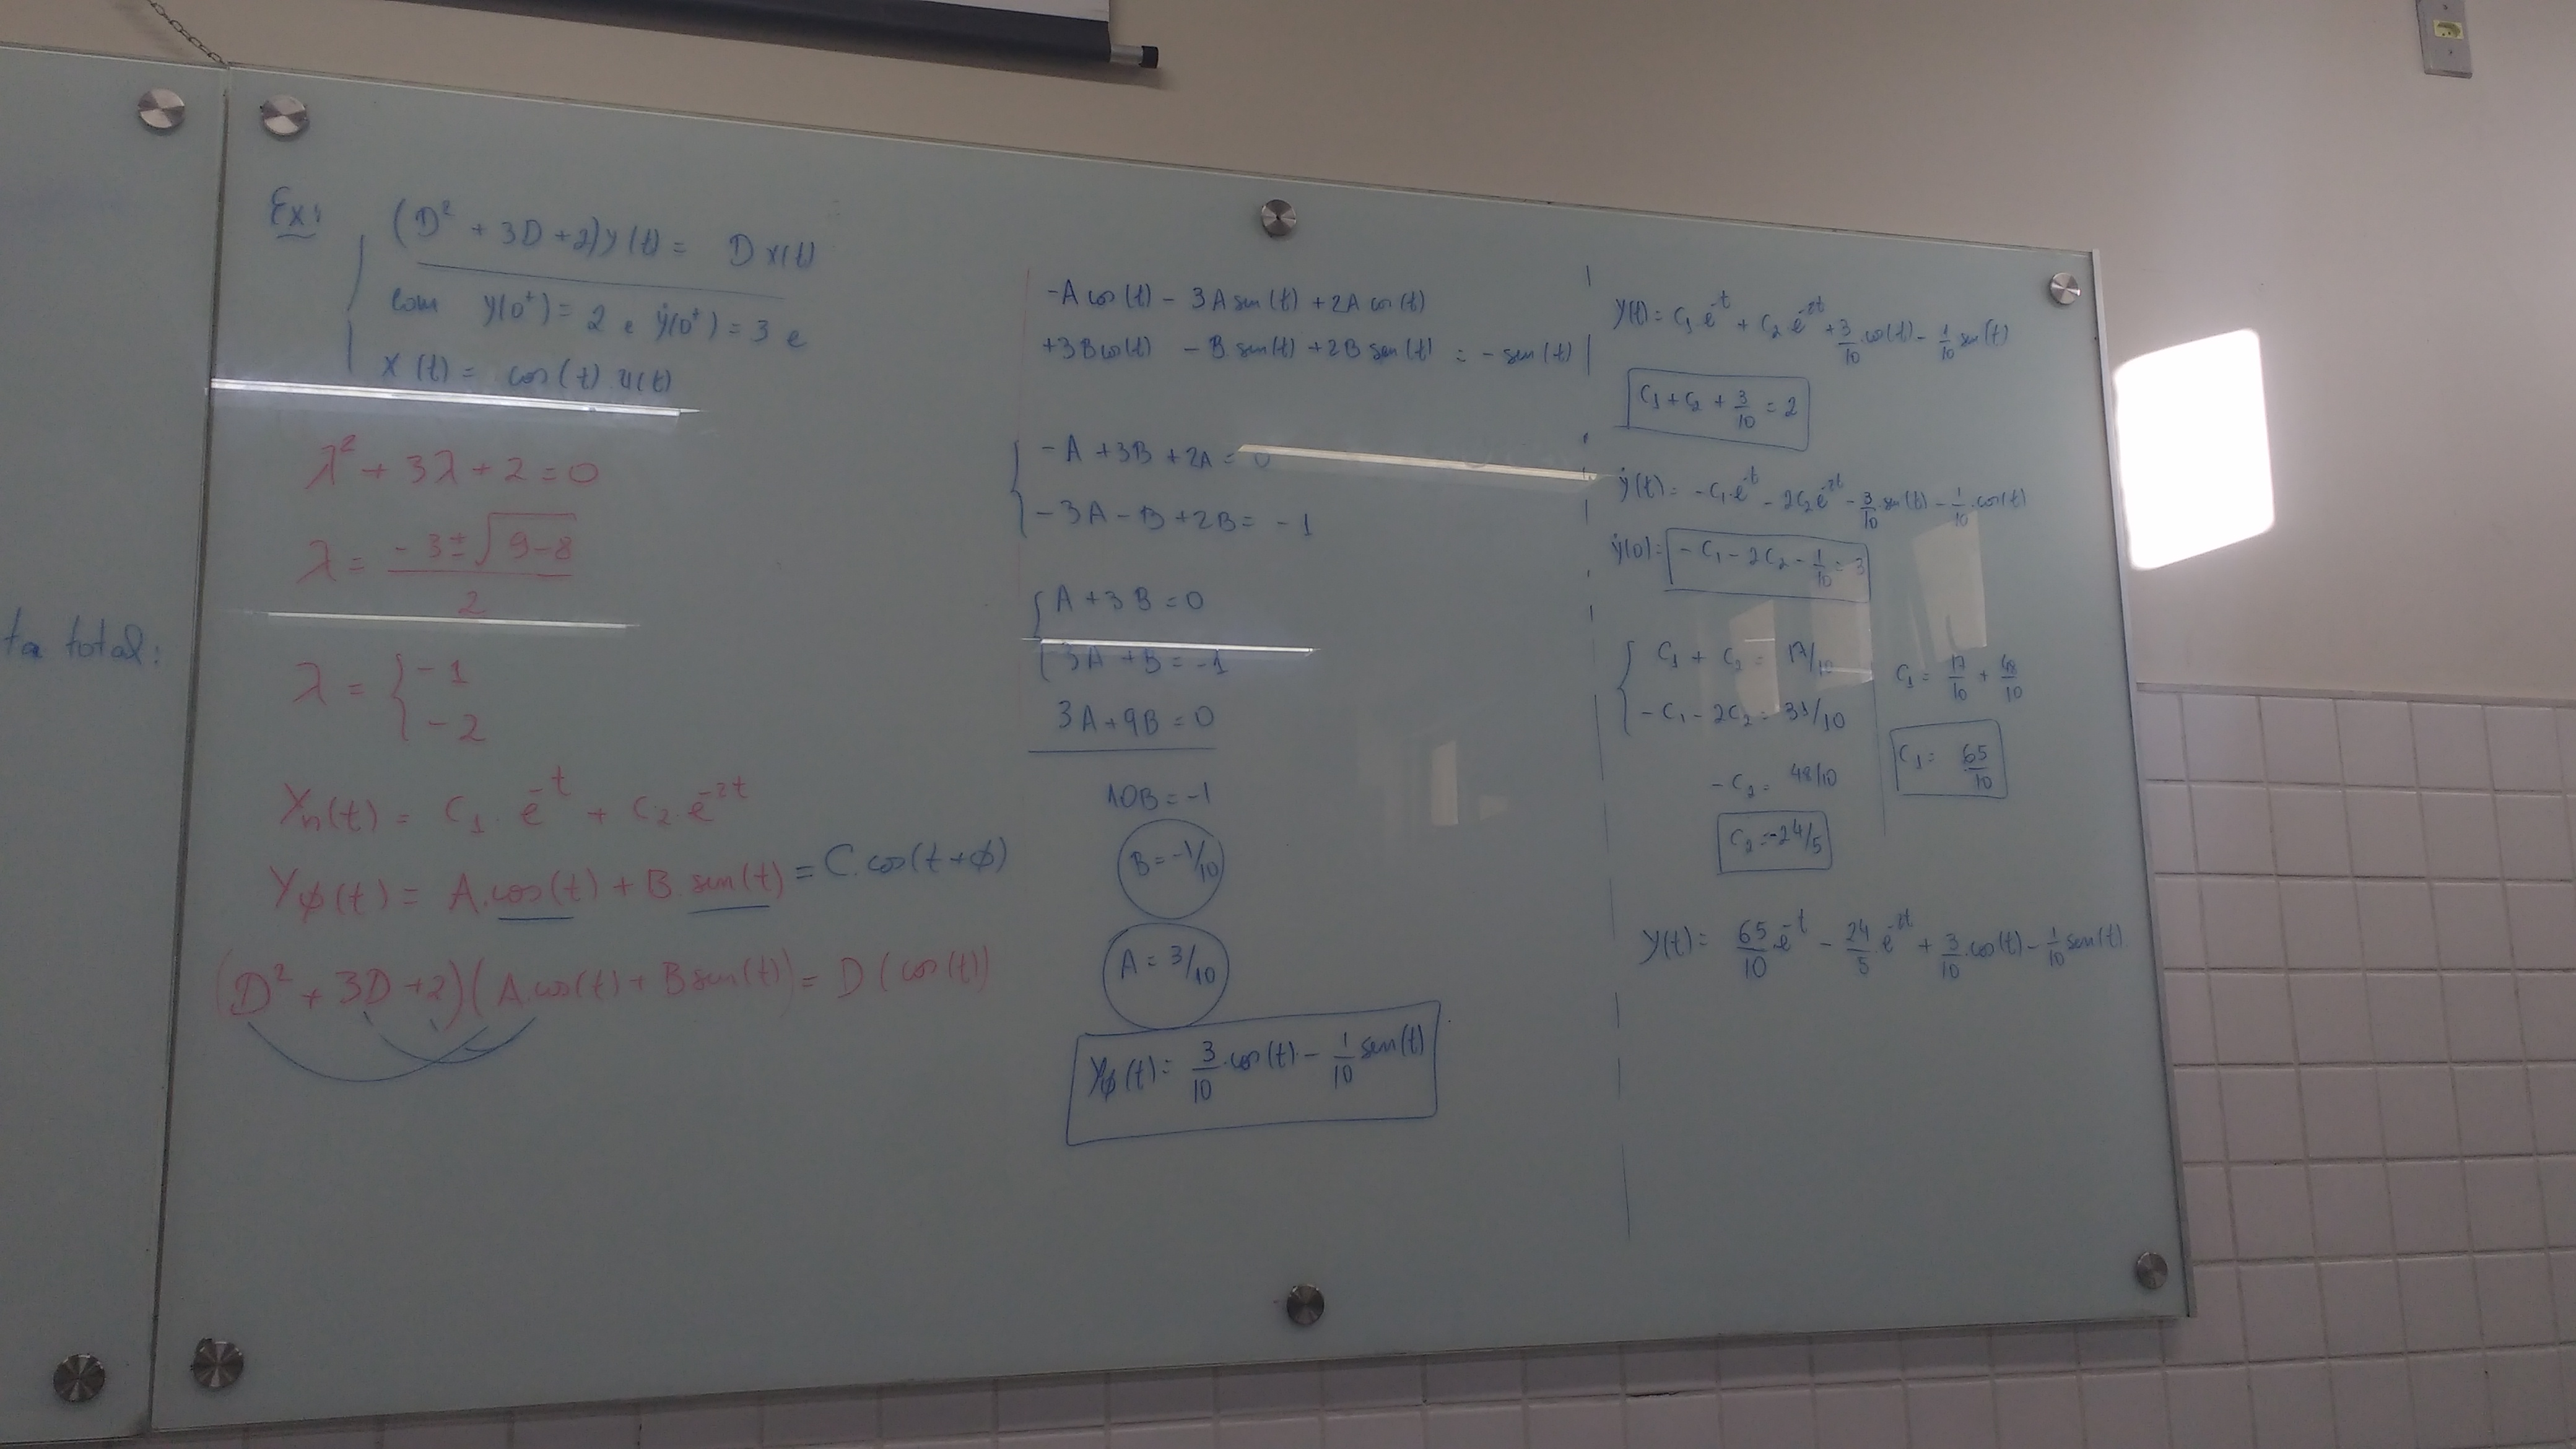 ta total:
Ex:
(D² + 3D + 2)y(t) = D x(t)
com y(0⁺) = 2 e ẏ(0⁺) = 3 e
x(t) = cos(t).u(t)
λ² + 3λ + 2 = 0
λ = (-3 ± √(9-8)) / 2
λ = { -1
-2
Yn(t) = C₁.e^-t + C₂ e^-2t
Yφ(t) = A.cos(t) + B sen(t) = C.cos(t+φ)
(D² + 3D + 2)(A.cos(t) + B sen(t)) = D(cos(t))
-A cos(t) - 3A sen(t) + 2A cos(t)
+3B cos(t) - B sen(t) + 2B sen(t) = -sen(t)
{ -A + 3B + 2A = 0
-3A - B + 2B = -1
{ A + 3B = 0
-3A + B = -1
3A + 9B = 0
10B = -1
B = -1/10
A = 3/10
Yφ(t) = 3/10.cos(t) - 1/10 sen(t)
y(t) = C₁e^-t + C₂e^-2t + 3/10.cos(t) - 1/10 sen(t)
C₁ + C₂ + 3/10 = 2
ẏ(t) = -C₁e^-t - 2C₂e^-2t - 3/10.sen(t) - 1/10.cos(t)
ẏ(0) = -C₁ - 2C₂ - 1/10 = 3
{ C₁ + C₂ = 17/10
-C₁ - 2C₂ = 31/10
-C₂ = 48/10
C₂ = -24/5
C₁ = 17/10 + 48/10
C₁ = 65/10
y(t) = 65/10 e^-t - 24/5 e^-2t + 3/10.cos(t) - 1/10 sen(t)